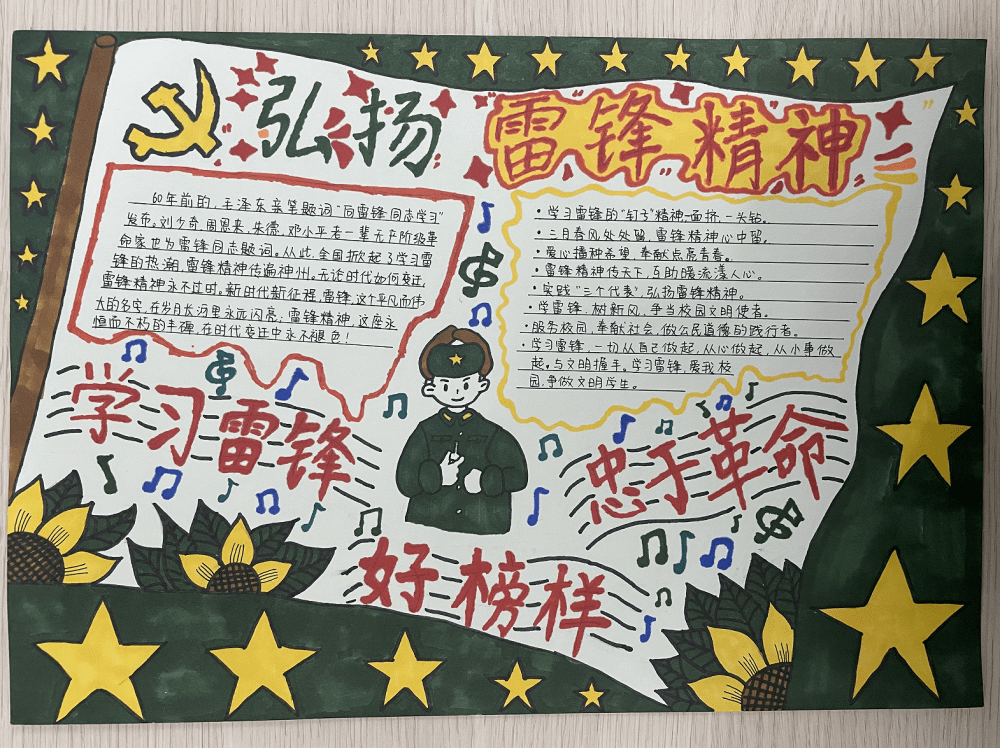 弘扬
"雷锋精神"
60年前的,毛泽东亲笔题词"向雷锋同志学习"
发布。刘少奇、周恩来、朱德、邓小平老一辈无产阶级革
命家也为雷锋同志题词。从此,全国掀起了学习雷
锋的热潮,雷锋精神传遍神州。无论时代如何变迁,
雷锋精神永不过时。新时代新征程,雷锋,这个平凡而伟
大的名字,在岁月长河里永远闪亮;雷锋精神,这座永
恒而不朽的丰碑,在时代变迁中永不褪色!
·学习雷锋的"钉子"精神一面挤,一头钻。
·三月春风处处留,雷锋精神心中留。
·爱心播种希望,奉献点亮青春。
·雷锋精神传天下,互助暖流漾人心。
·实践"三个代表",弘扬雷锋精神。
·学雷锋,树新风,争当校园文明使者。
·服务校园,奉献社会,做公民道德的践行者。
·学习雷锋,一切从自己做起,从心做起,从小事做
起。与文明握手。学习雷锋,爱我校
园,争做文明学生。
学习雷锋
忠于革命
好榜样